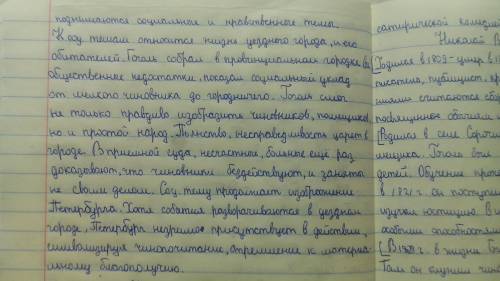 поднимаются социальные и нравственные темы.
К соц. темам относится жизнь уездного города, и его
обитателей. Гоголь собрал в провинциальном городке все
общественные недостатки, показал социальный уклад
от мелкого чиновника до городничего. Гоголь смог
не только правдиво изобразить чиновников, помещиков,
но и простой народ. Пьянство, несправедливость царят в
городе. В приемной суда, несчастные, больные ещё раз
доказывают, что чиновники бездействуют, и заняты
не своим делом. Соц. тему продолжает изображение
Петербурга. Хотя события разворачиваются в уездном
городе, Петербург незримо присутствует в действии,
символизируя чинопочитание, стремление к матери-
альному благополучию.
сатирической комедии
Николай В
Родился в 1809 - умер в 1
писатель, публицист, кр
считаются сбор
посвященное обычаям
Родился в селе Сороч
мещика. Гоголь был
детей. Обучение прох
в 1821 г. он поступил
изучал юстицию. В
особыми способностям
В 1828 г. в жизни Го
Там он служил чино